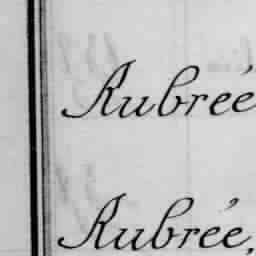 Aubrée
Aubrée,